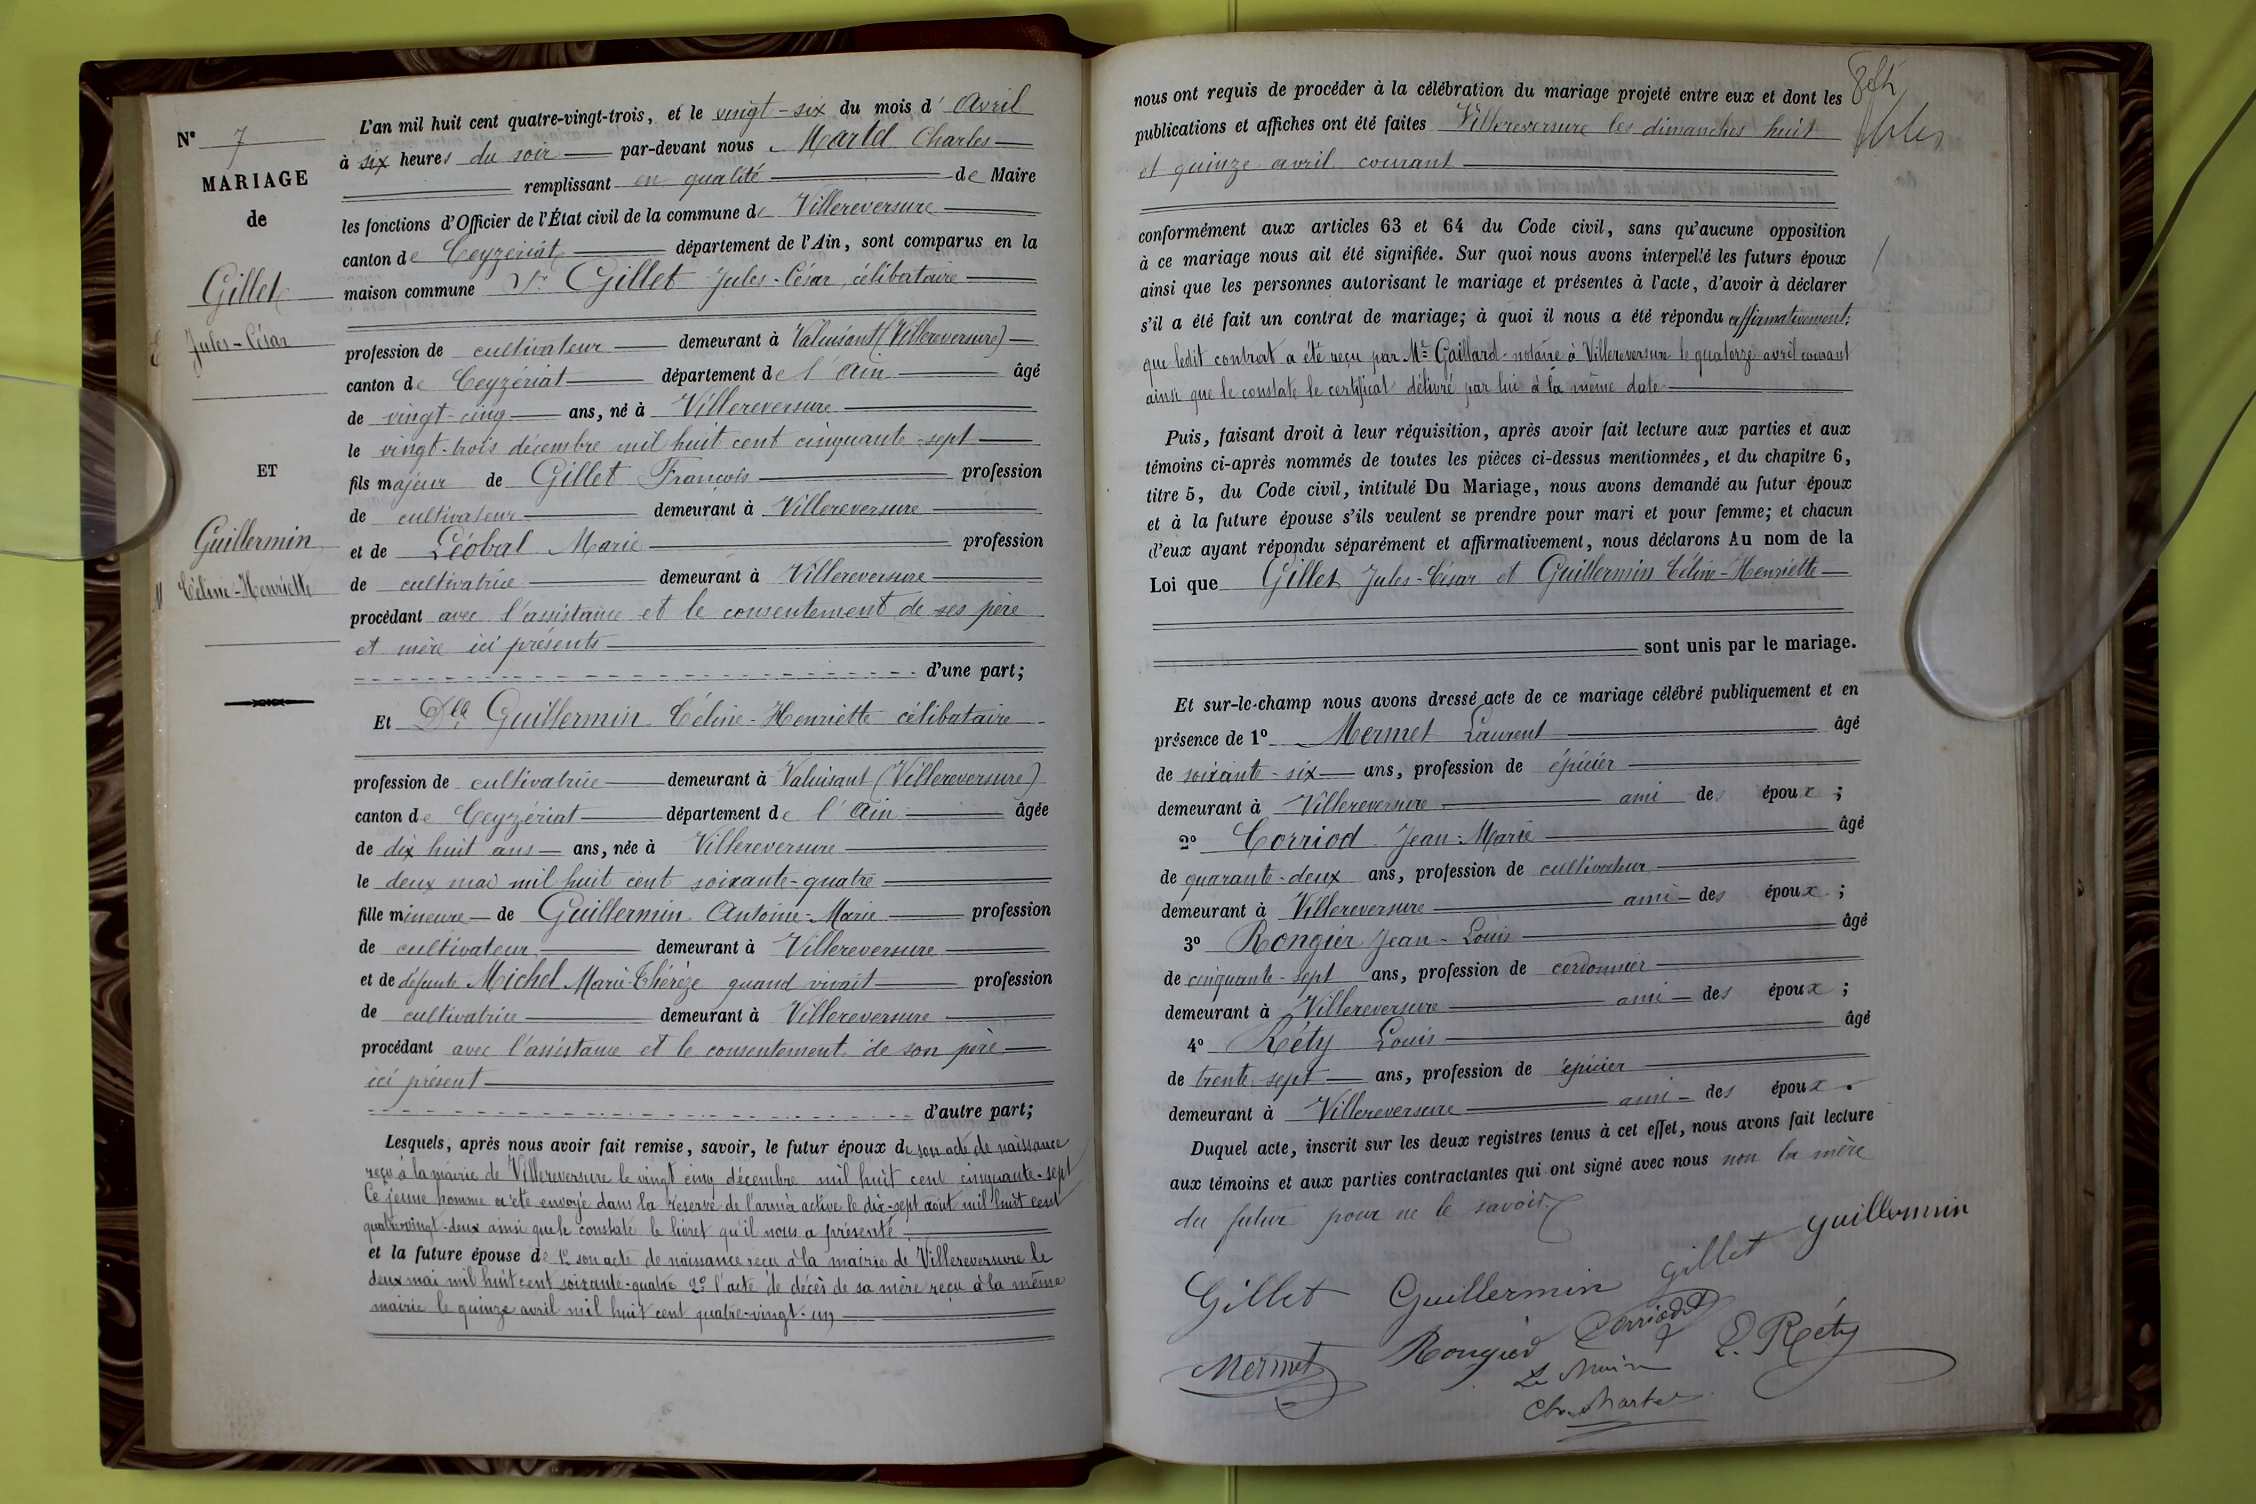 N° 7
MARIAGE
de
Gillet
Jules-César
ET
Guillermin
Céline-Henriette
L'an mil huit cent quatre-vingt-trois, et le vingt-six du mois d' Avril
à six heures du soir par-devant nous Martel Charles
remplissant en qualité de Maire
les fonctions d'Officier de l'État civil de la commune de Villereversure
canton de Ceyzériat département de l'Ain, sont comparus en la
maison commune Sr Gillet Jules-César, célibataire
profession de cultivateur demeurant à Valuisant (Villereversure)
canton de Ceyzériat département de l'Ain âgé
de vingt-cinq ans, né à Villereversure
le vingt-trois décembre mil huit cent cinquante-sept
fils majeur de Gillet François profession
de cultivateur demeurant à Villereversure
et de Léobal Marie profession
de cultivatrice demeurant à Villereversure
procédant avec l'assistance et le consentement de ses père
et mère ici présents
d'une part;
Et Dlle Guillermin Céline-Henriette célibataire
profession de cultivatrice demeurant à Valuisant (Villereversure)
canton de Ceyzériat département de l'Ain âgée
de dix huit ans ans, née à Villereversure
le deux mai mil huit cent soixante-quatre
fille mineure de Guillermin Antoine-Marie profession
de cultivateur demeurant à Villereversure
et de défunte Michel Marie-Thérèze quand vivait profession
de cultivatrice demeurant à Villereversure
procédant avec l'assistance et le consentement de son père
ici présent
d'autre part;
Lesquels, après nous avoir fait remise, savoir, le futur époux de son acte de naissance
reçu à la mairie de Villereversure le vingt cinq décembre mil huit cent cinquante-sept
Ce jeune homme a été envoyé dans la réserve de l'armée active le dix-sept août mil huit cent
quatre-vingt-deux ainsi que le constate le livret qu'il nous a présenté
et la future épouse de 1° son acte de naissance reçu à la mairie de Villereversure le
deux mai mil huit cent soixante-quatre 2° l'acte de décès de sa mère reçu à la même
mairie le quinze avril mil huit cent quatre-vingt-un
nous ont requis de procéder à la célébration du mariage projeté entre eux et dont les
publications et affiches ont été faites Villereversure les dimanches huit
et quinze avril courant
conformément aux articles 63 et 64 du Code civil, sans qu'aucune opposition
à ce mariage nous ait été signifiée. Sur quoi nous avons interpellé les futurs époux
ainsi que les personnes autorisant le mariage et présentes à l'acte, d'avoir à déclarer
s'il a été fait un contrat de mariage; à quoi il nous a été répondu affirmativement;
que ledit contrat a été reçu par Me Gaillard notaire à Villereversure le quatorze avril courant
ainsi que le constate le certificat délivré par lui à la même date
Puis, faisant droit à leur réquisition, après avoir fait lecture aux parties et aux
témoins ci-après nommés de toutes les pièces ci-dessus mentionnées, et du chapitre 6,
titre 5, du Code civil, intitulé Du Mariage, nous avons demandé au futur époux
et à la future épouse s'ils veulent se prendre pour mari et pour femme; et chacun
d'eux ayant répondu séparément et affirmativement, nous déclarons Au nom de la
Loi que Gillet Jules-César et Guillermin Céline-Henriette
sont unis par le mariage.
Et sur-le-champ nous avons dressé acte de ce mariage célébré publiquement et en
présence de 1° Mermet Laurent âgé
de soixante-six ans, profession de épicier
demeurant à Villereversure ami des époux ;
2° Corriod Jean-Marie âgé
de quarante-deux ans, profession de cultivateur
demeurant à Villereversure ami des époux ;
3° Rongier Jean-Louis âgé
de cinquante-sept ans, profession de cordonnier
demeurant à Villereversure ami des époux ;
4° Réty Louis âgé
de trente-sept ans, profession de épicier
demeurant à Villereversure ami des époux .
Duquel acte, inscrit sur les deux registres tenus à cet effet, nous avons fait lecture
aux témoins et aux parties contractantes qui ont signé avec nous non la mère
du futur pour ne le savoir.
Gillet Guillermin gillet guillermin
Mermet Rongier Corriod L. Réty
Le Maire
Ch. Martel